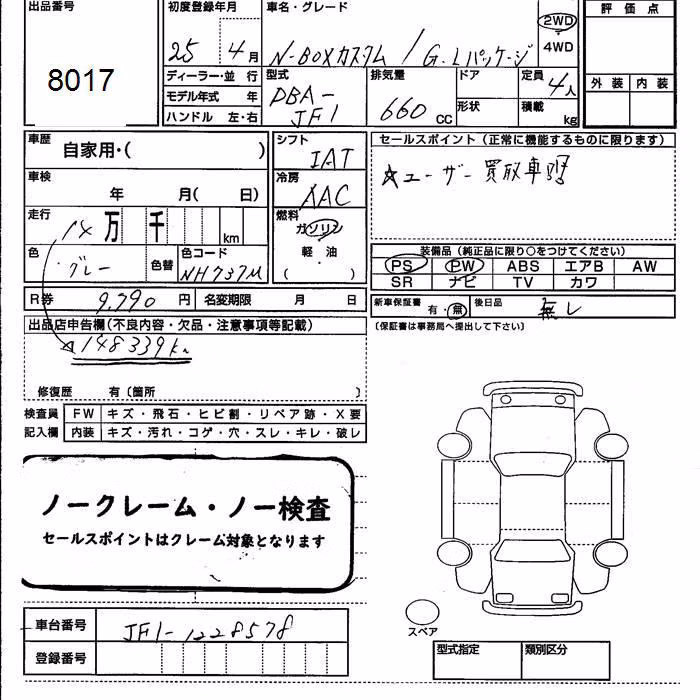 出品番号
8017
初度登録年月
25 年 4月
車名・グレード
N-BOXカスタム / G・Lパッケージ
2WD
4WD
評価点
外装 内装
ディーラー・並行
モデル年式 年
ハンドル 左・右
型式
DBA-
JF1
排気量
660 CC
ドア
形状
定員
4人
積載
kg
車歴
自家用・( )
車検
年 月( 日)
走行
14 万 千 km
色
グレー
色替
色コード
NH737M
シフト
IAT
冷房
AAC
燃料
ガソリン
軽油
( )
セールスポイント(正常に機能するものに限ります)
☆ユーザー買取車
装備品(純正品に限り○をつけてください)
PS PW ABS エアB AW
SR ナビ TV カワ
R券 9,790 円 名変期限 月 日
新車保証書 有・無 後日品 無し
(保証書は事務局へ提出して下さい)
出品店申告欄(不良内容・欠品・注意事項等記載)
148339km
修復歴 有〔箇所 〕
検査員
記入欄
FW キズ・飛石・ヒビ割・リペア跡・X要
内装 キズ・汚れ・コゲ・穴・スレ・キレ・破レ
ノークレーム・ノー検査
セールスポイントはクレーム対象となります
スペア
車台番号 JF1-1228578
登録番号
型式指定 類別区分